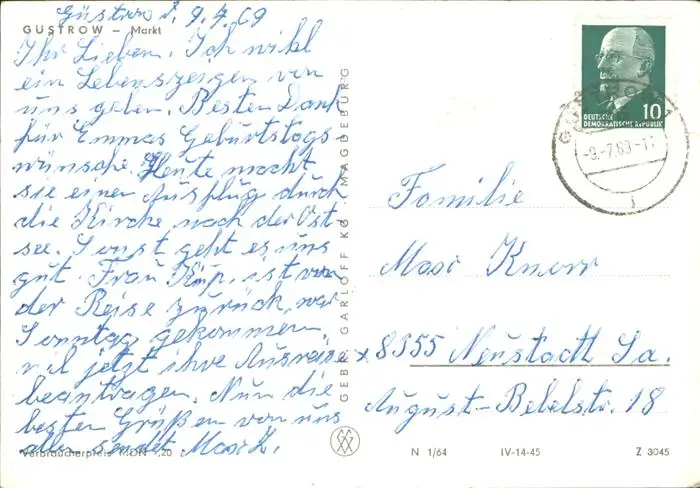 Güstrow d. 9.7.69
GÜSTROW – Markt
Ihr Lieben. Ich will
ein Lebenszeichen von
uns geben. Besten Dank
für Emmas Geburtstags-
wünsche. Heute macht
sie einen Ausflug durch
die Kirche nach der Ost-
see. Sonst geht es uns
gut. Frau ist von
der Reise zurück, war
Sonntag gekommen,
will jetzt ihre Ausreise
beantragen. Nun die
besten Grüßen von uns
allen sendet
Verbraucherpreis MDN -,20
GEBR. GARLOFF KG MAGDEBURG
LOGA
10
DEUTSCHE
DEMOKRATISCHE REPUBLIK
-9.-7.69-17
Familie
Max Knorr
8355 Neustadt Sa.
August-Bebelstr. 18
N 1/64 IV-14-45 Z 3045